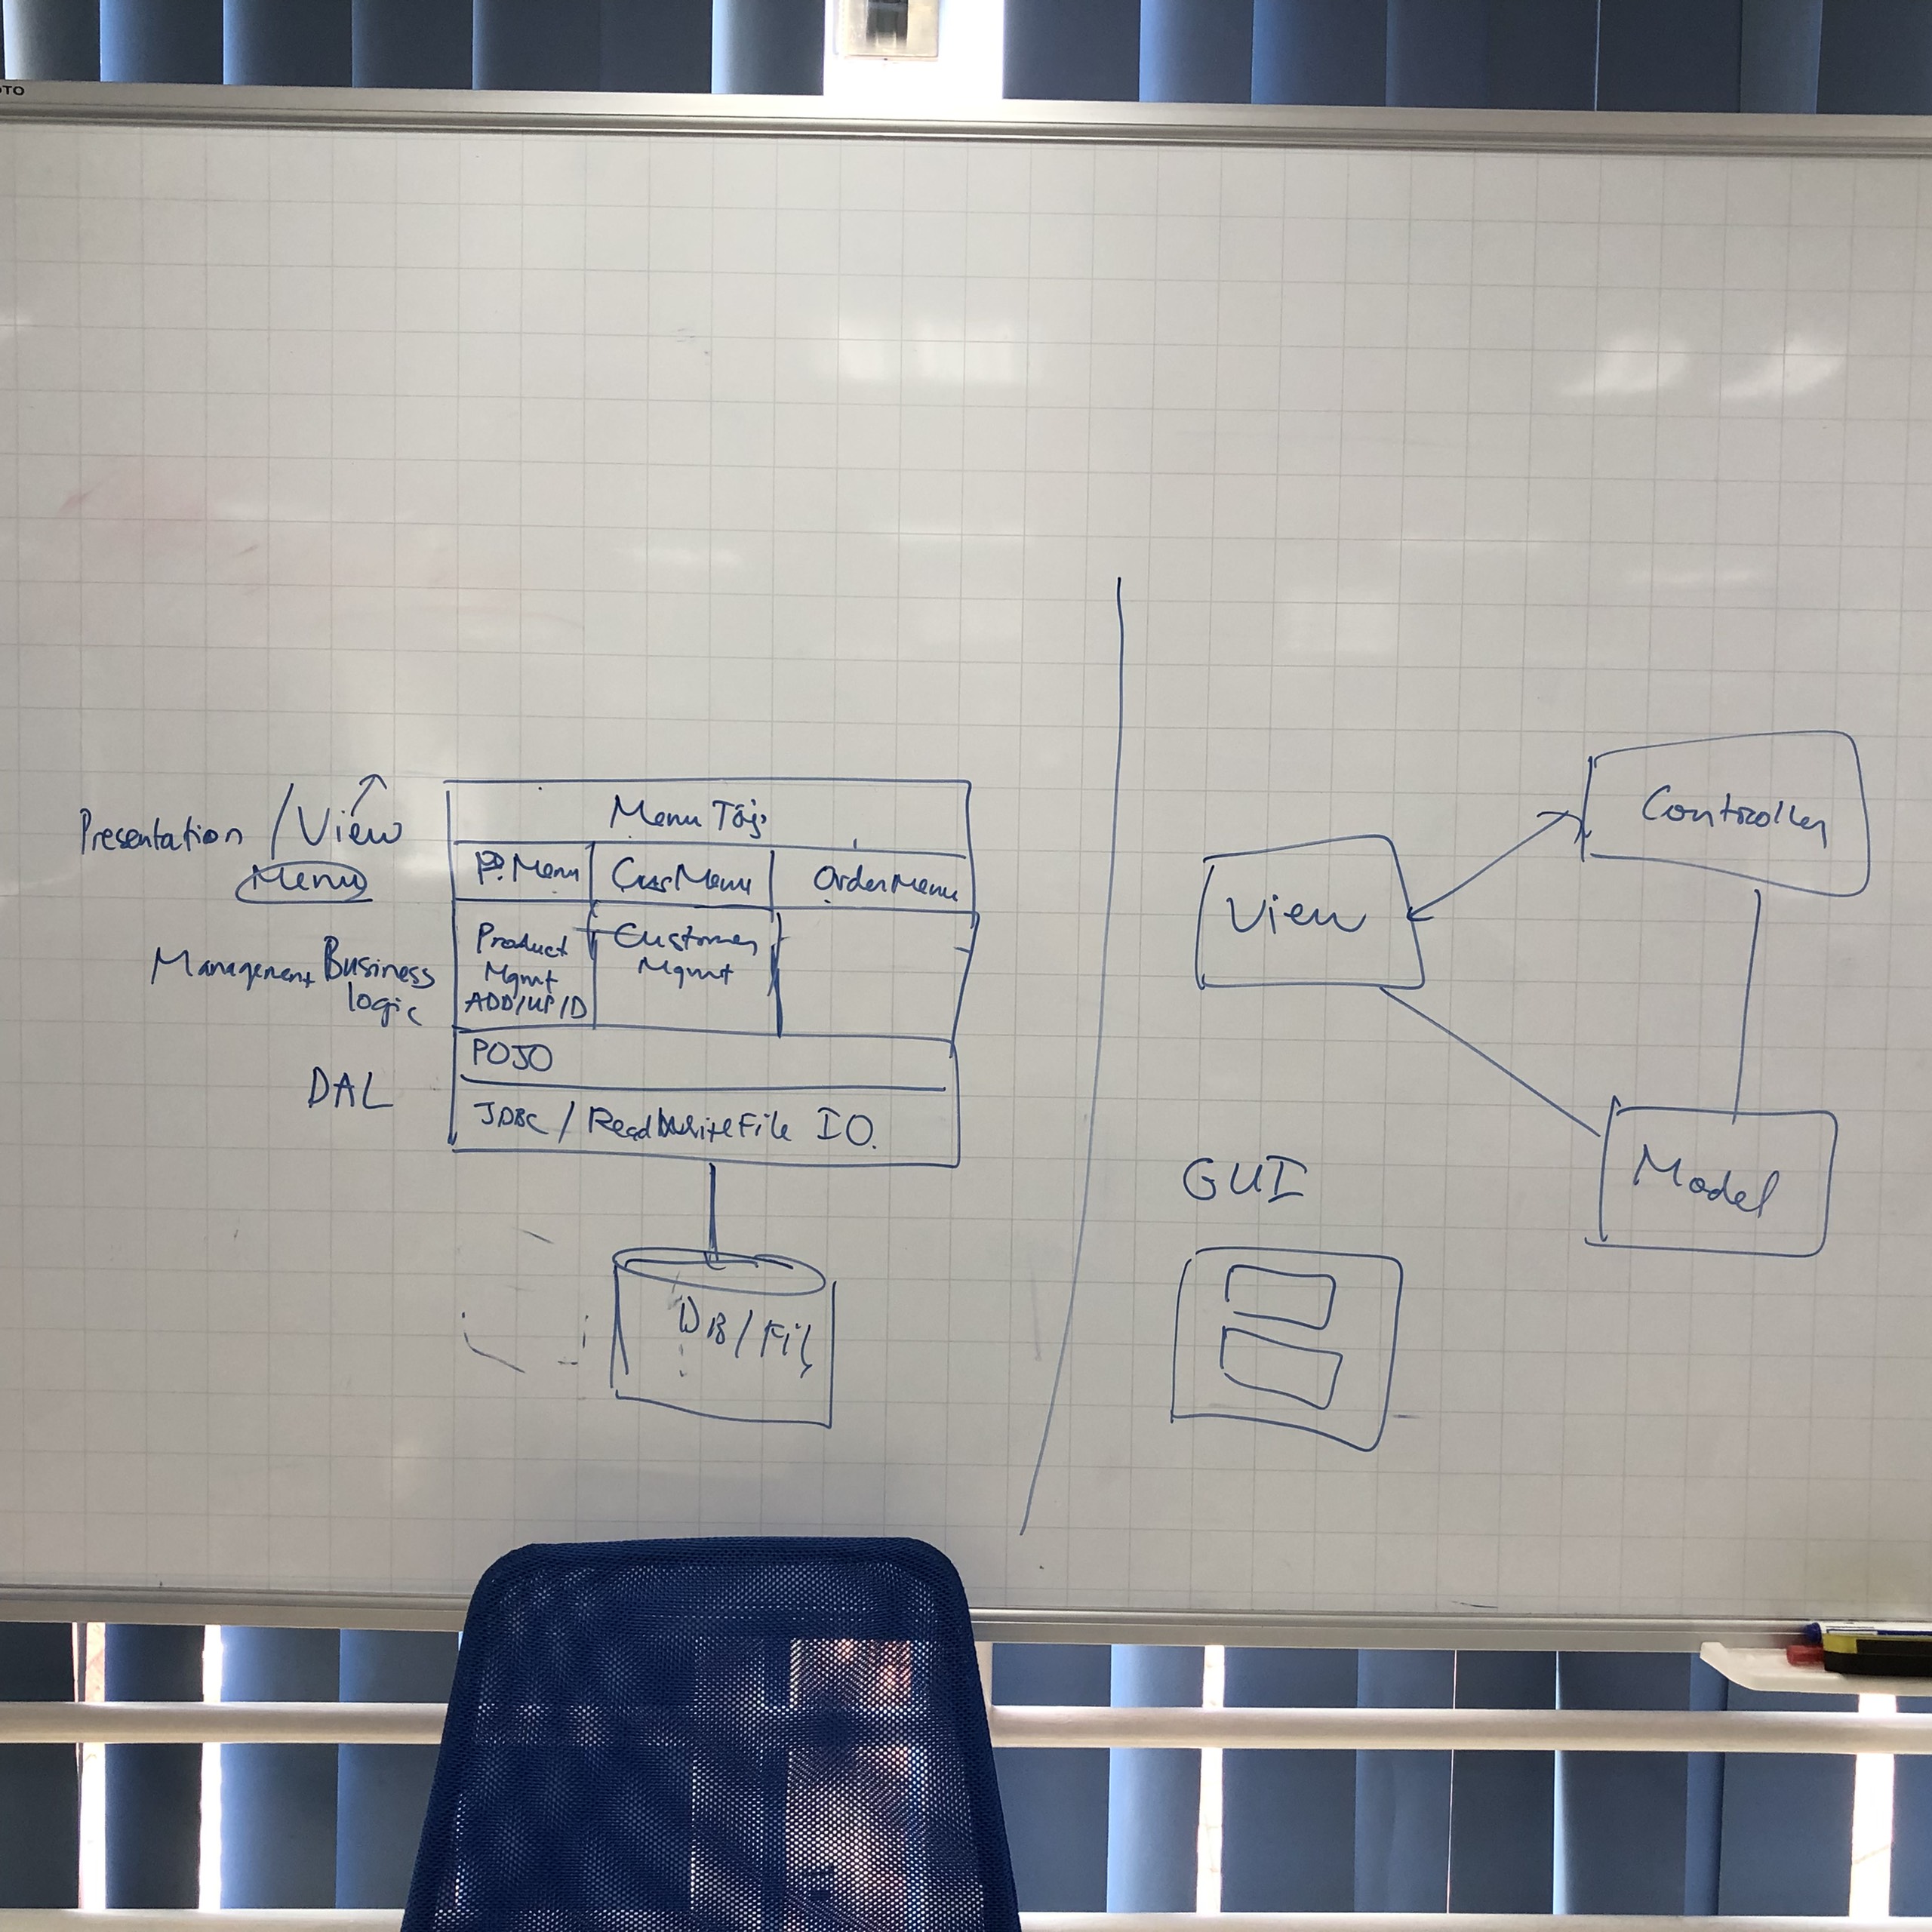 Presentation / View
Menu
Management Business
logic
DAL
Menu
P.Menu
CusMenu
OrderMenu
Product
Mgmt
ADD/UP/D
Customer
Mgmt
POJO
JDBC / ReadWriteFile IO.
DB/Fil
View
Controller
Model
GUI